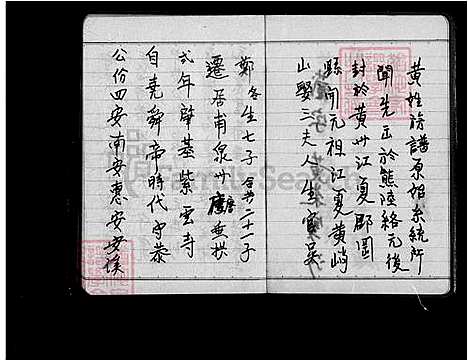 黃姓族譜原始系統所
聞先正於熊陸絡元後
封於黃州江夏郡國
縣開元祖江夏黃峭
山娶三夫人生官吳
鄭各生七子合共二十一子
遷居甫泉州唐垂拱
弍年肇基紫雲寺
自堯舜帝時代守恭
公份四安南安惠安安溪